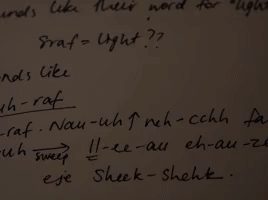 unds like their word for "light
Sraf = Light??
nds like
uh-raf
-raf. Nau-uh↑neh-cchh fa
-uh → sweep ll-ee-au eh-au-ze
eje Sheek-Shehk.